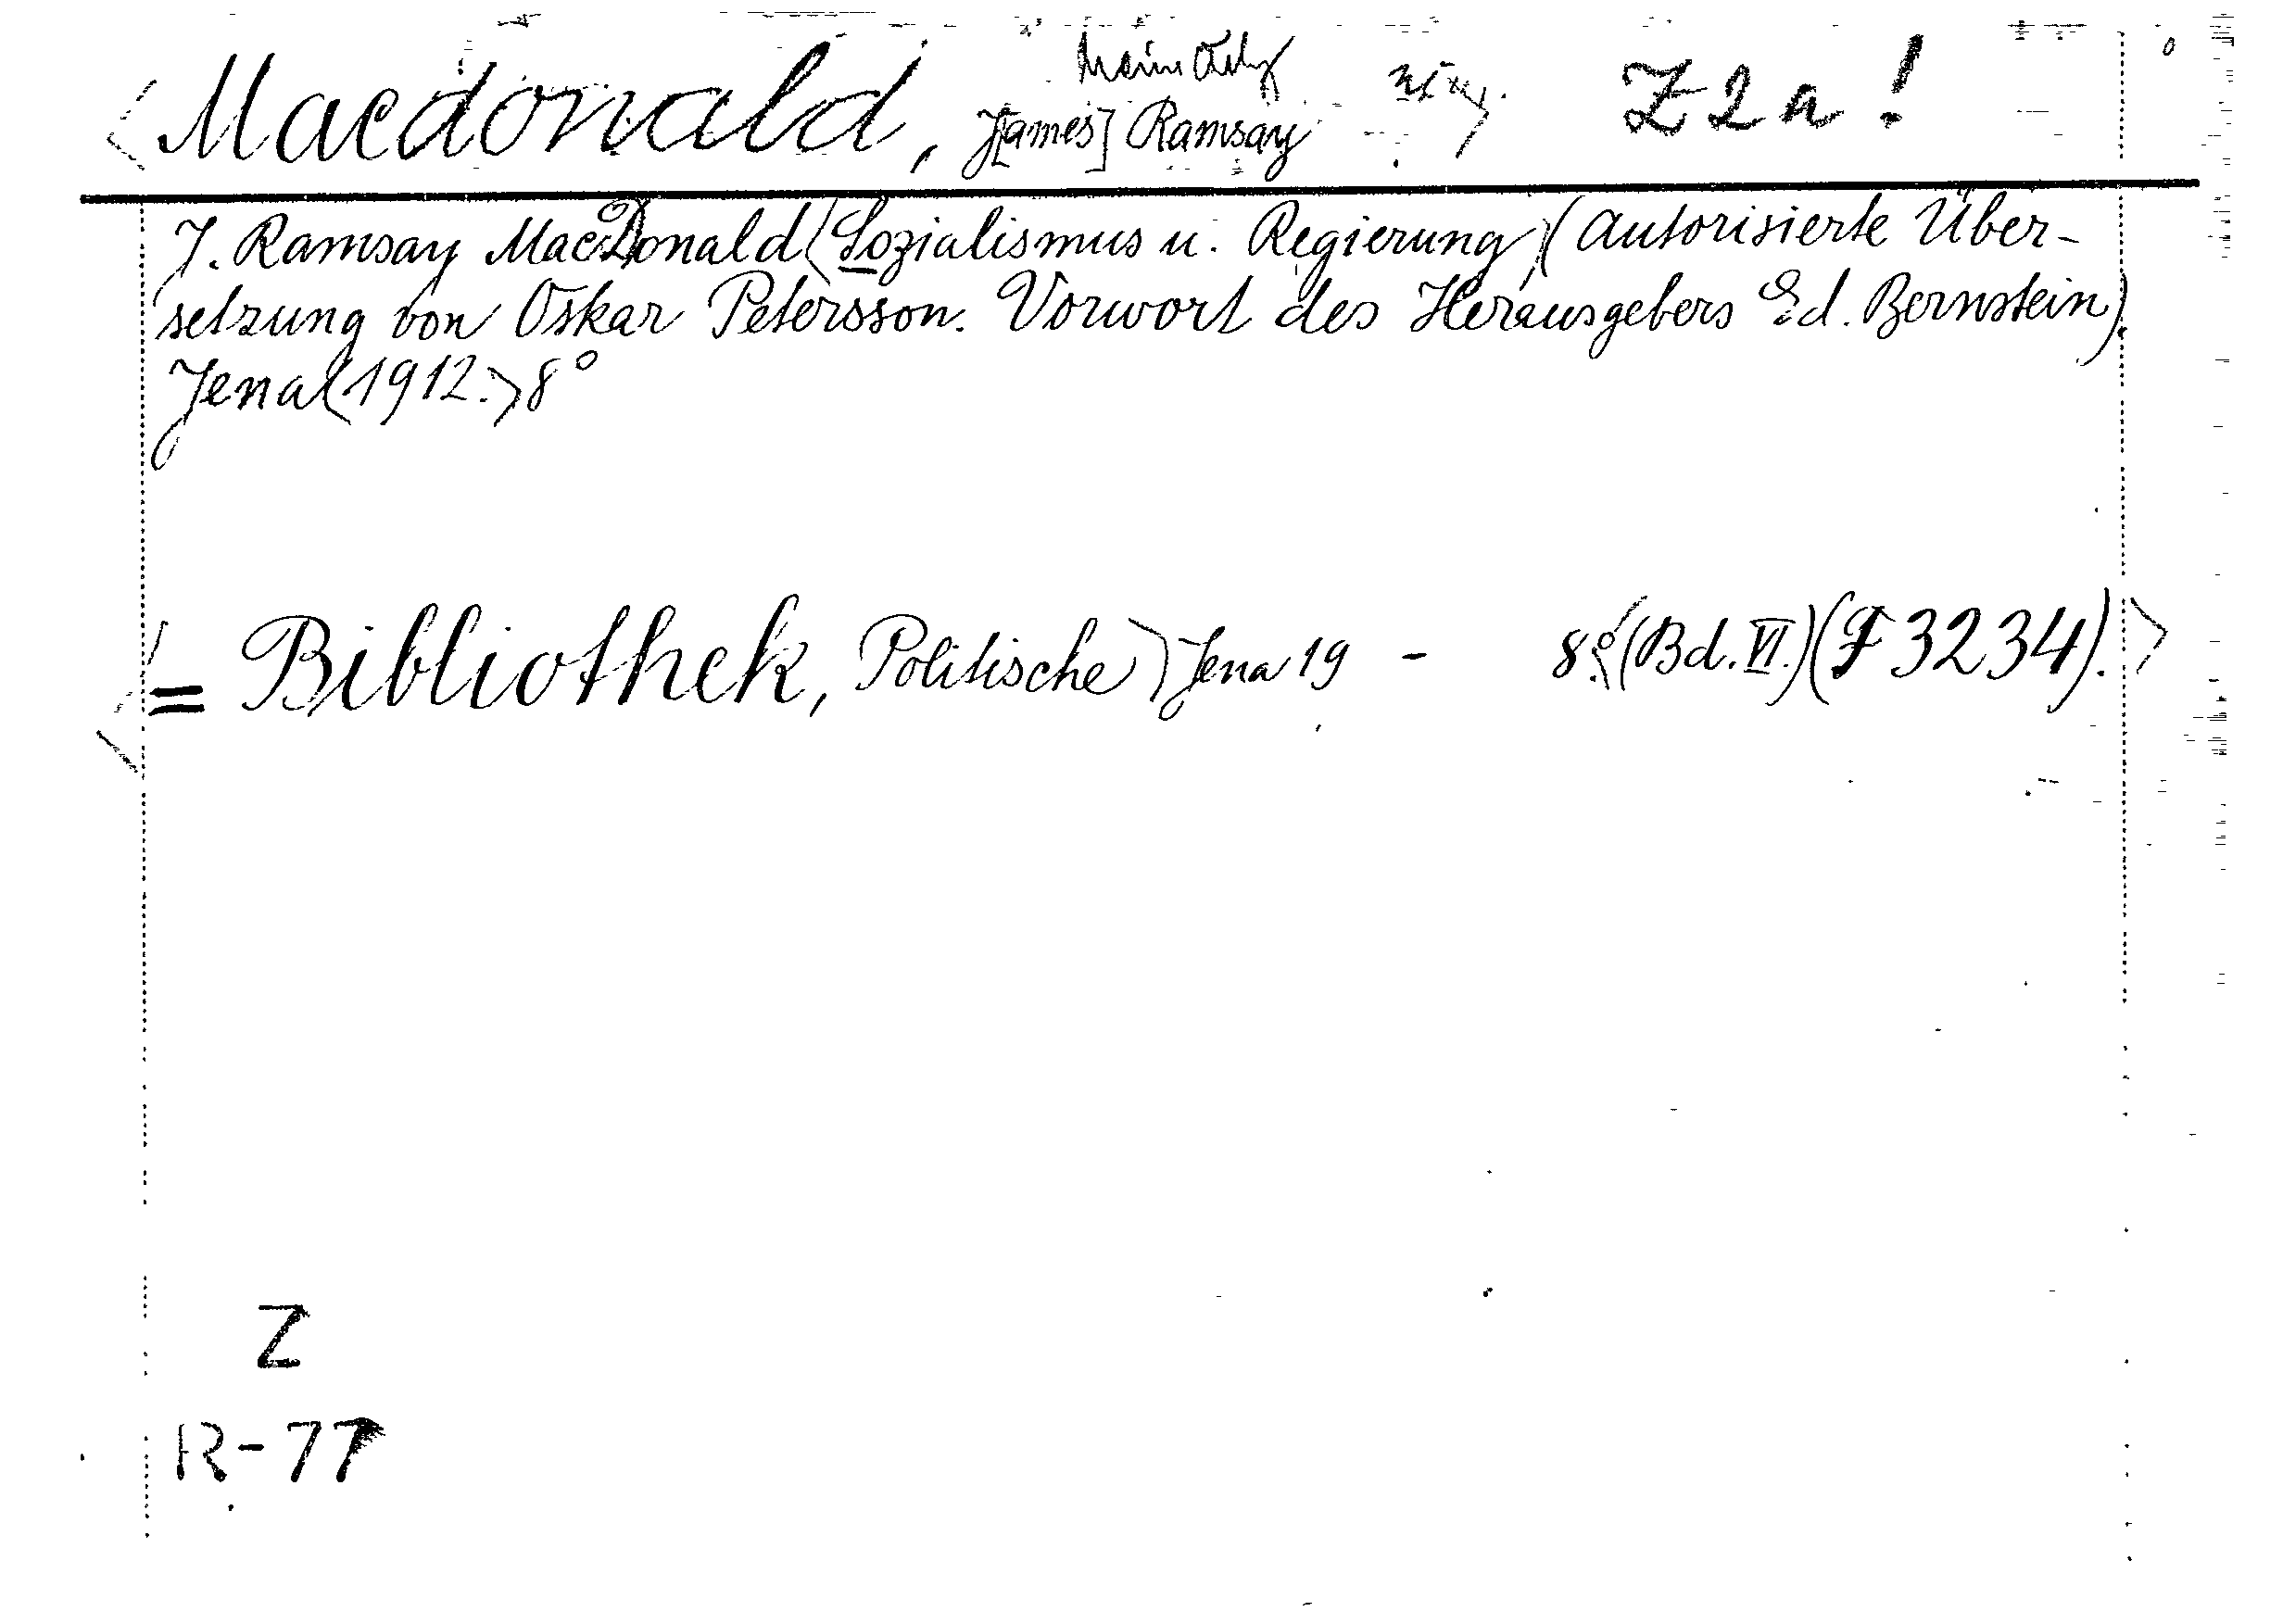 ⟨Macdonald, J[ames] Ramsay⟩ Z2a!
J. Ramsay MacDonald⟨Sozialismus u. Regierung⟩(Autorisierte Über-
setzung von Oskar Petersson. Vorwort des Herausgebers Ed. Bernstein).
Jena⟨1912.⟩8°
⟨= Bibliothek, Politische⟩Jena 19 - 8°.⟨(Bd. VI.)(F 3234).⟩
Z
R-77